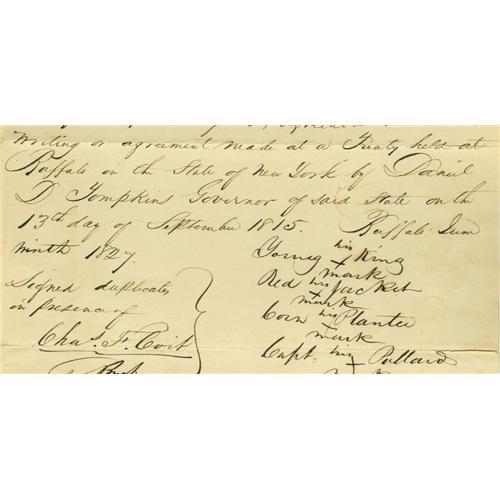 writing or agreement made at a Treaty held at
Buffalo in the State of New York by Daniel
D Tompkins Governor of said State on the
13th day of September 1815. Buffalo June
ninth 1827.
Young his X mark King
Red his X mark Jacket
Corn his X mark Planter
Capt. his X Pollard
Signed duplicates
in presence of
Chas. F. Coit